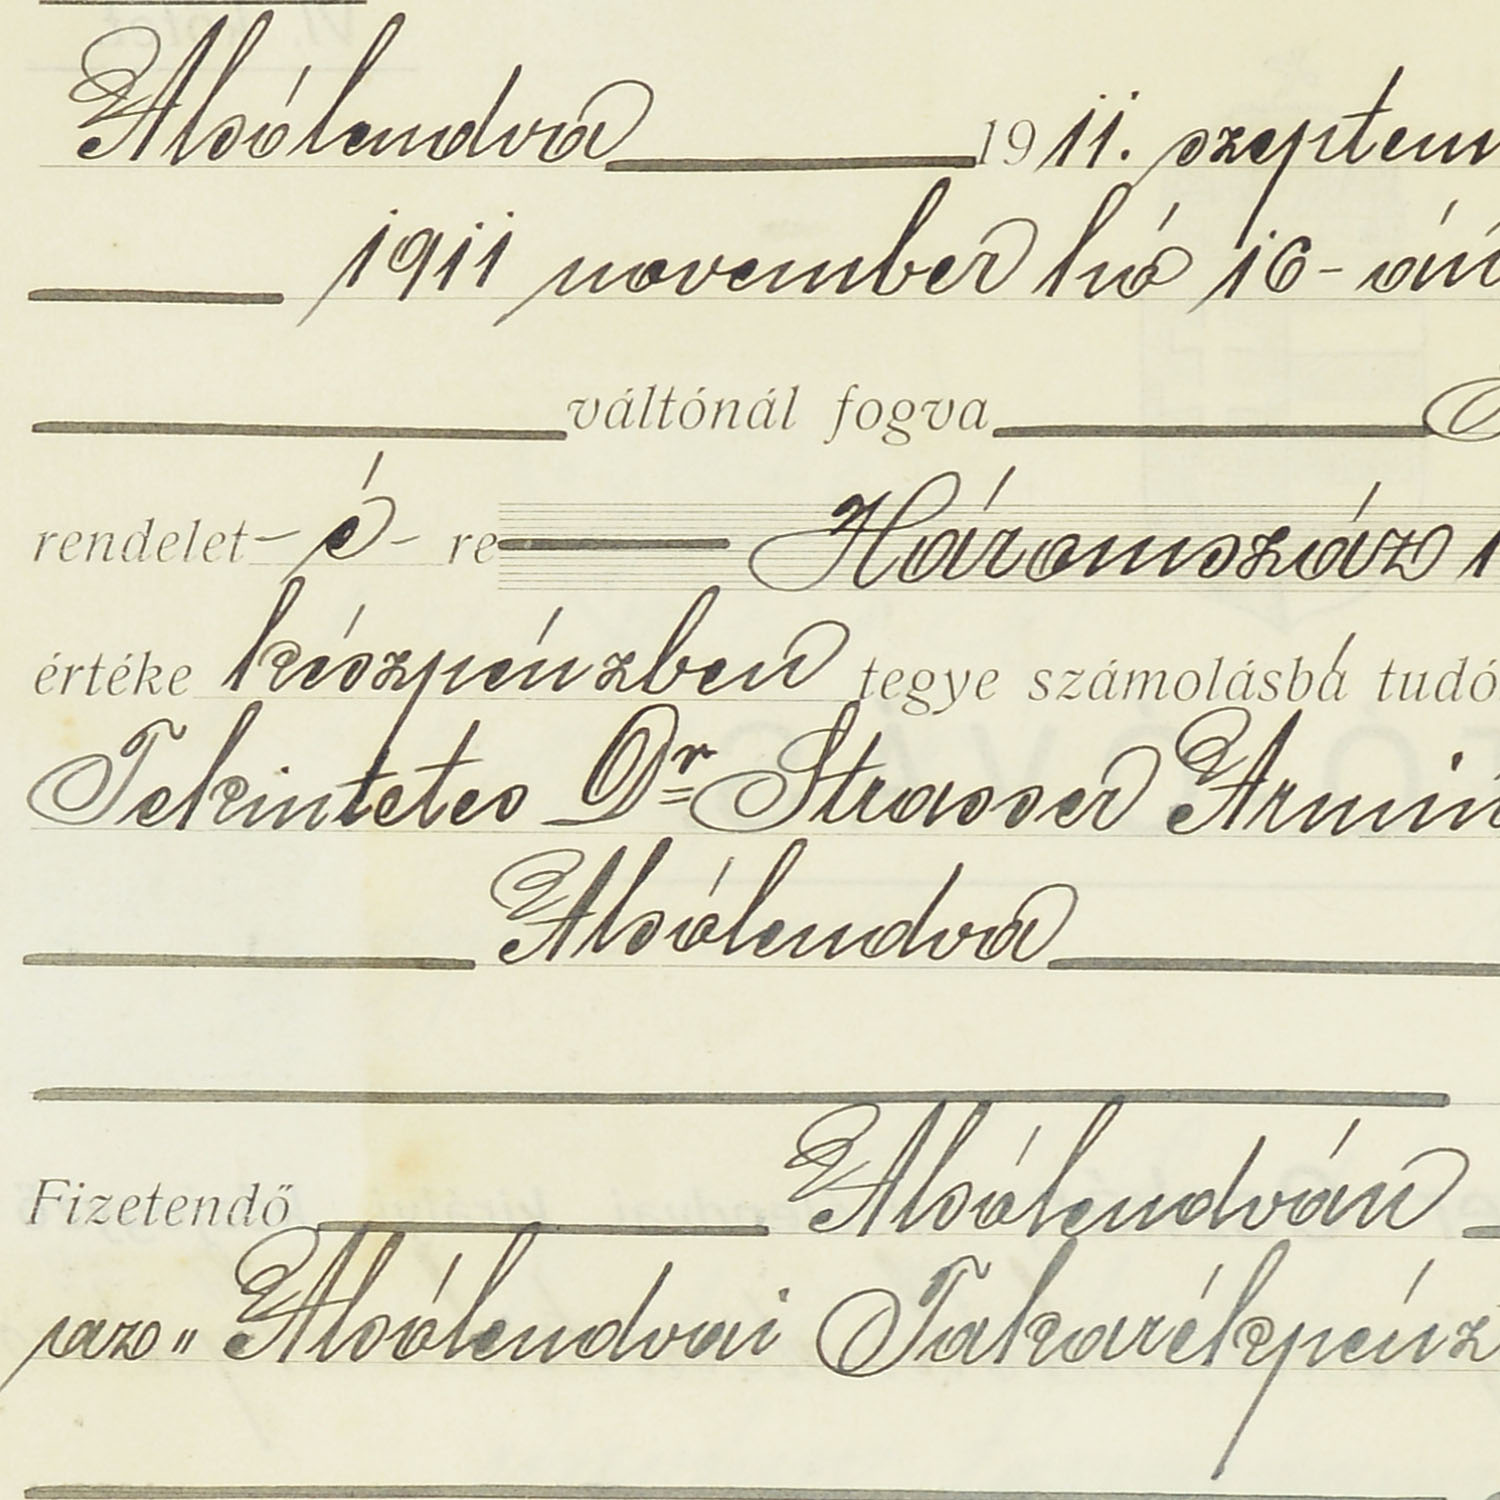 Alsólendva 1911. szeptem
1911 november hó 16-án
váltónál fogva
rendelet-é-re Háromszáz
értéke készpénzben tegye számolásba tudó
Tekintetes Dr Strasser Ármin
Alsólendva
Fizetendő Alsólendván
az „Alsólendvai Takarékpénz